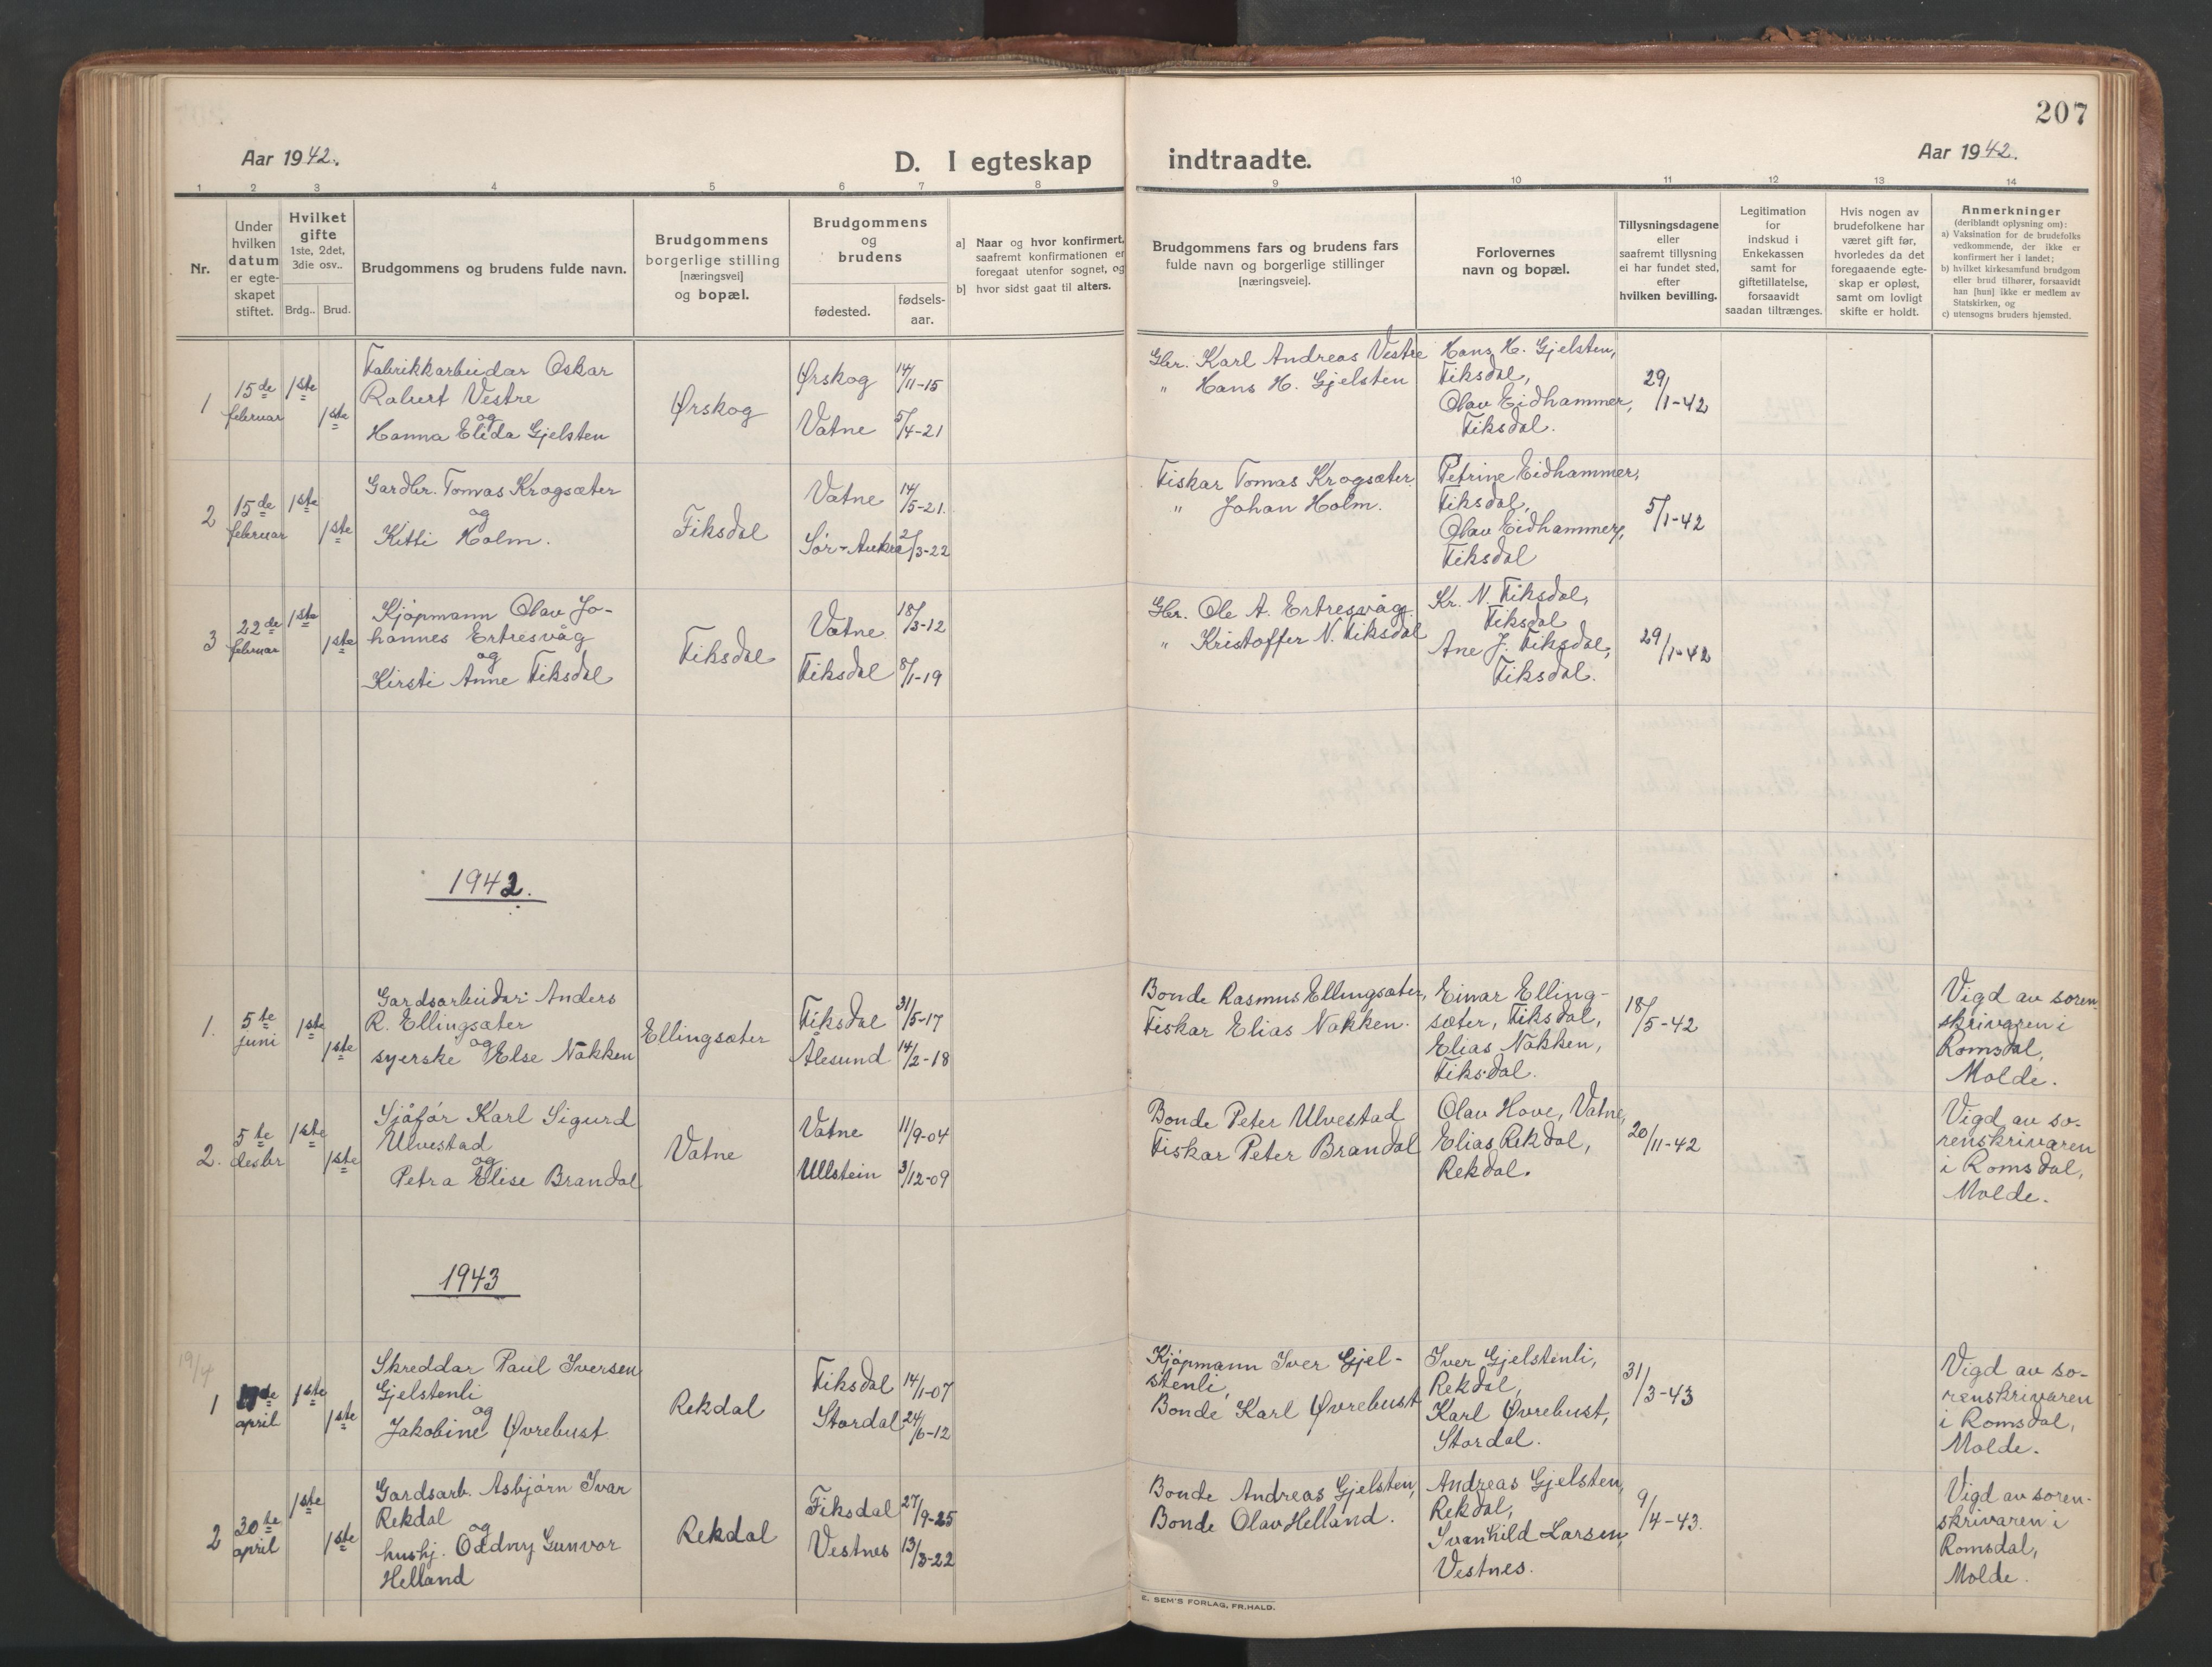 207
Aar 1942.
D. I egteskap indtraadte.
Aar 1942.
1 2 3 4 5 6 7 8 9 10 11 12 13 14
Nr.
Under
hvilken
datum
er egte-
skapet
stiftet.
Hvilket
gifte
1ste, 2det,
3die osv..
Brdg.. Brud.
Brudgommens og brudens fulde navn.
Brudgommens
borgerlige stilling
[næringsvei]
og bopæl.
Brudgommens
og
brudens
fødested.
fødsels-
aar.
a] Naar og hvor konfirmert,
saafremt konfirmationen er
foregaat utenfor sognet, og
b] hvor sidst gaat til alters.
Brudgommens fars og brudens fars
fulde navn og borgerlige stillinger
[næringsveie].
Forlovernes
navn og bopæl.
Tillysningsdagene
eller
saafremt tillysning
ei har fundet sted,
efter
hvilken bevilling.
Legitimation
for
indskud i
Enkekassen
samt for
giftetillatelse,
forsaavidt
saadan tiltrænges.
Hvis nogen av
brudefolkene har
været gift før,
hvorledes da det
foregaaende egte-
skap er opløst,
samt om lovligt
skifte er holdt.
Anmerkninger
(deriblandt oplysning om):
a) Vaksination for de brudefolks
vedkommende, der ikke er
konfirmert her i landet;
b) hvilket kirkesamfund brudgom
eller brud tilhører, forsaavidt
han [hun] ikke er medlem av
Statskirken, og
c) utensogns bruders hjemsted.
1
15de
februar
1ste
1ste
Fabrikkarbeidar Oskar
Robert Vestre
og
Hanna Elida Gjelsten
Ørskog
Ørskog 14/11-15
Vatne 5/4-21
Gbr. Karl Andreas Vestre
" Hans H. Gjelsten
Hans H. Gjelsten,
Fiksdal,
Olav Eidhammer,
Fiksdal.
29/1-42
2
15de
februar
1ste
1ste
Gardbr. Tomas Krogsæter
og
Kitti Holm.
Fiksdal
Vatne 14/5-21
Sør-Aukra 2/3-22
Fiskar Tomas Krogsæter
" Johan Holm.
Petrine Eidhammer,
Fiksdal,
Olav Eidhammer,
Fiksdal
5/1-42
3
22de
februar
1ste
1ste
Kjøpmann Olav Jo-
hannes Ertresvåg
og
Kirsti Anne Fiksdal
Fiksdal
Vatne 18/3-12
Fiksdal 8/1-19
Gbr. Ole A. Ertresvåg.
" Kristoffer N. Fiksdal
Kr. N. Fiksdal,
Fiksdal
Ane J. Fiksdal,
Fiksdal.
29/1-42
1942.
1.
5te
juni
1ste
1ste
Gardsarbeidar Anders
R. Ellingsæter
og
syerske Else Nakken
Ellingsæter
Fiksdal 31/5-17
Ålesund 14/2-18
Bonde Rasmus Ellingsæter,
Fiskar Elias Nakken.
Einar Elling-
sæter, Fiksdal,
Elias Nakken,
Fiksdal.
18/5-42
Vigd av soren-
skrivaren i
Romsdal,
Molde.
2.
5te
desbr
1ste
1ste
Sjåfør Karl Sigurd
Ulvestad
og
Petra Elise Brandal
Vatne
Vatne 11/9-04
Ullstein 3/12-09
Bonde Peter Ulvestad
Fiskar Peter Brandal
Olav Hove, Vatne,
Elias Rekdal,
Rekdal.
20/11-42
Vigd av so-
renskrivaren
i Romsdal,
Molde.
1943
19/4
1
april
1ste
1ste
Skreddar Paul Iversen
Gjelstenli
og
Jakobine Øvrebust
Rekdal
Fiksdal 14/1-07
Stordal 24/6-12
Kjøpmann Iver Gjel-
stenli,
Bonde Karl Øvrebust
Iver Gjelstenli,
Rekdal,
Karl Øvrebust,
Stordal.
31/3-43
Vigd av so-
renskrivaren
i Romsdal,
Molde.
2
30te
april
1ste
1ste
Gardsarb. Asbjørn Ivar
Rekdal
og
hushj. Oddny Gunvor
Helland
Rekdal
Fiksdal 27/9-25
Vestnes 13/3-22
Bonde Andreas Gjelsten,
Bonde Olav Helland.
Andreas Gjelsten,
Rekdal,
Svanhild Larsen,
Vestnes.
9/4-43.
Vigd av soren-
skrivaren i
Romsdal,
Molde.
E. SEM'S FORLAG, FR.HALD.